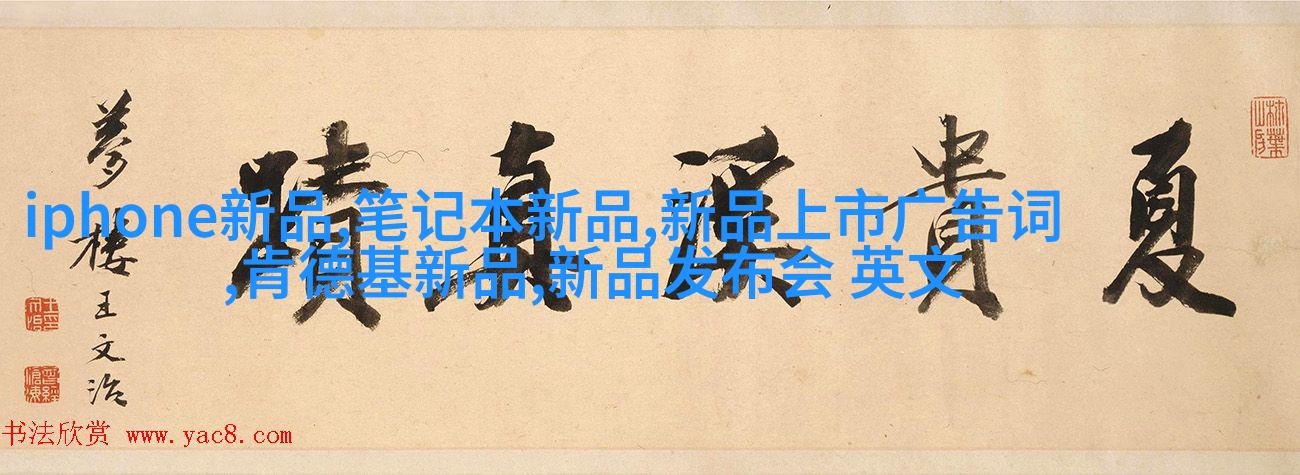 夏貴溪真蹟
夢樓王文治
iphone新品,笔记本新品,新品上市广告词
,肯德基新品,新品发布会 英文
书法欣赏 www.yac8.com